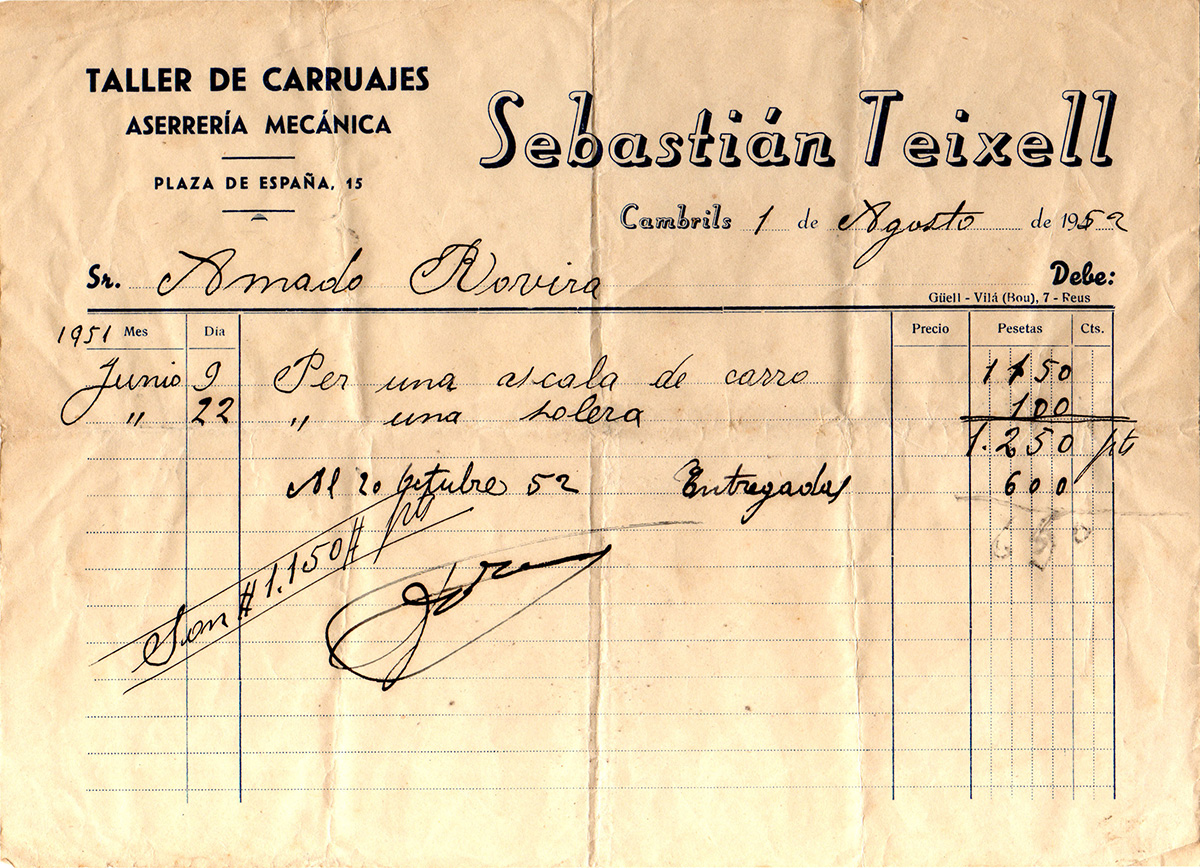 TALLER DE CARRUAJES
ASERRERÍA MECÁNICA
PLAZA DE ESPAÑA, 15
Sebastián Teixell
Cambrils 1 de Agosto de 1952
Sr. Amado Rovira Debe:
Güell - Vilá (Bou), 7 - Reus
1951 Mes Día Precio Pesetas Cts.
Junio 9 Per una ascala de carro 1150
" 22 " una solera 100
1.250 pts
Al 20 Octubre 52 Entregadas 600
650
Son # 1.150 # pts